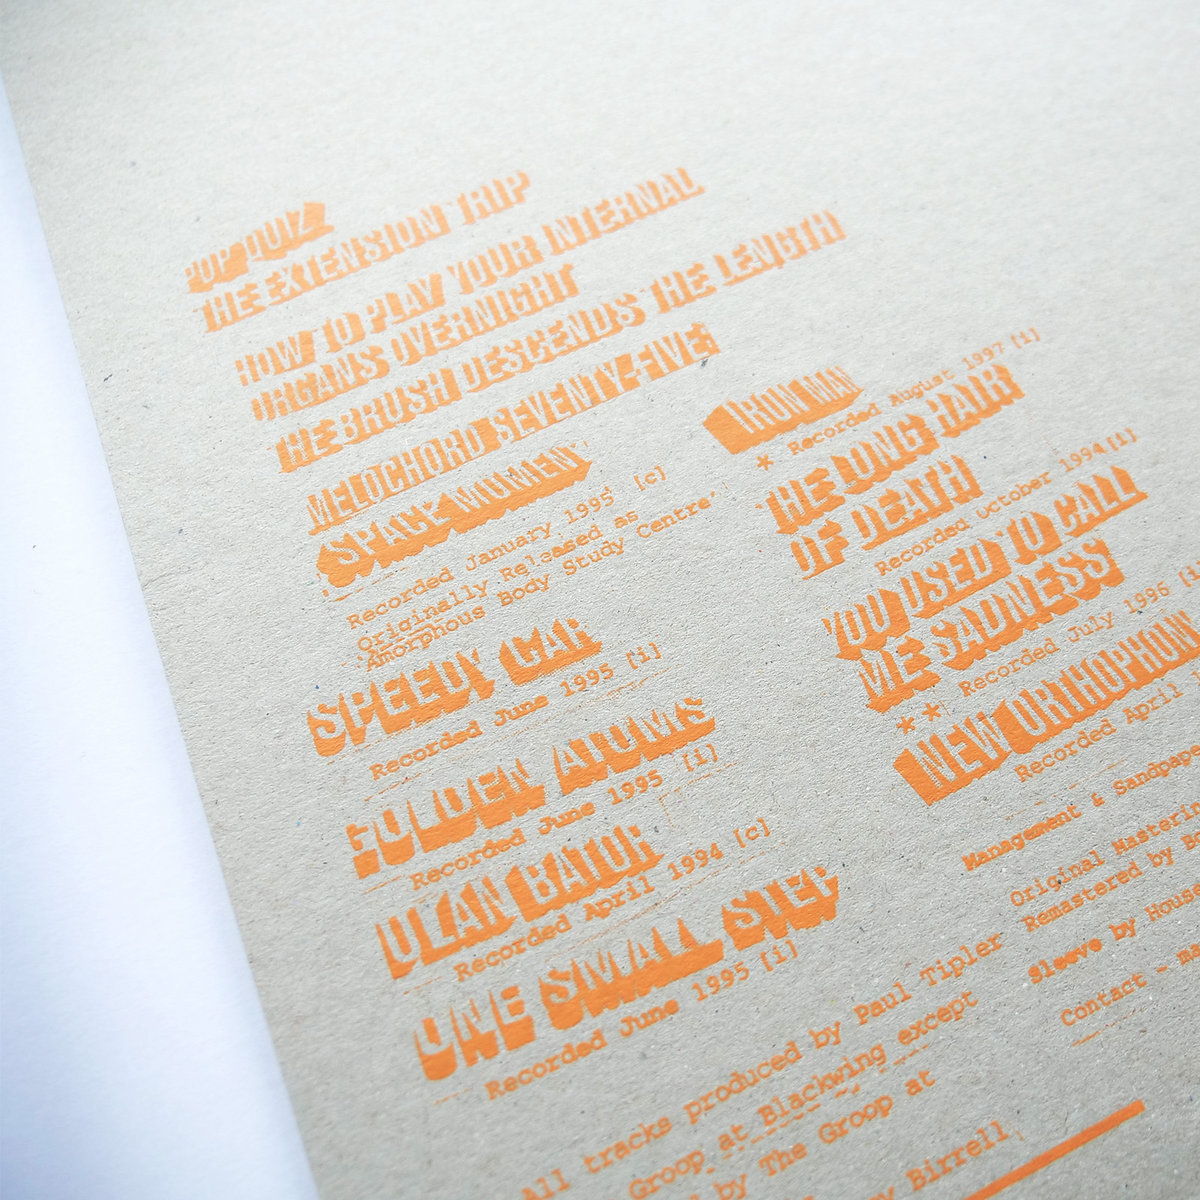 POP QUIZ
THE EXTENSION TRIP
HOW TO PLAY YOUR INTERNAL
ORGANS OVERNIGHT
THE BRUSH DESCENDS THE LENGTH
MELOCHORD SEVENTY-FIVE
SPACE MOMENT
Recorded January 1995 [c]
Originally Released as
'Amorphous Body Study Centre'
SPEEDY CAR
Recorded June 1995 [i]
GOLDEN ATOMS
Recorded June 1995 [i]
ULAN BATOR
Recorded April 1994 [c]
ONE SMALL STEP
Recorded June 1995 [i]
IRON MAN
* Recorded August 1997 [i]
THE LONG HAIR
OF DEATH
Recorded October 1994 [i]
YOU USED TO CALL
ME SADNESS
Recorded July 1996 [i]
**
NEW ORTHOPHONY
Recorded April
Management & Sandpaper
Original Mastering
Remastered by
Sleeve by House
Contact -
All tracks produced by Paul Tipler
Groop at Blackwing except
by The Groop at
Birrell